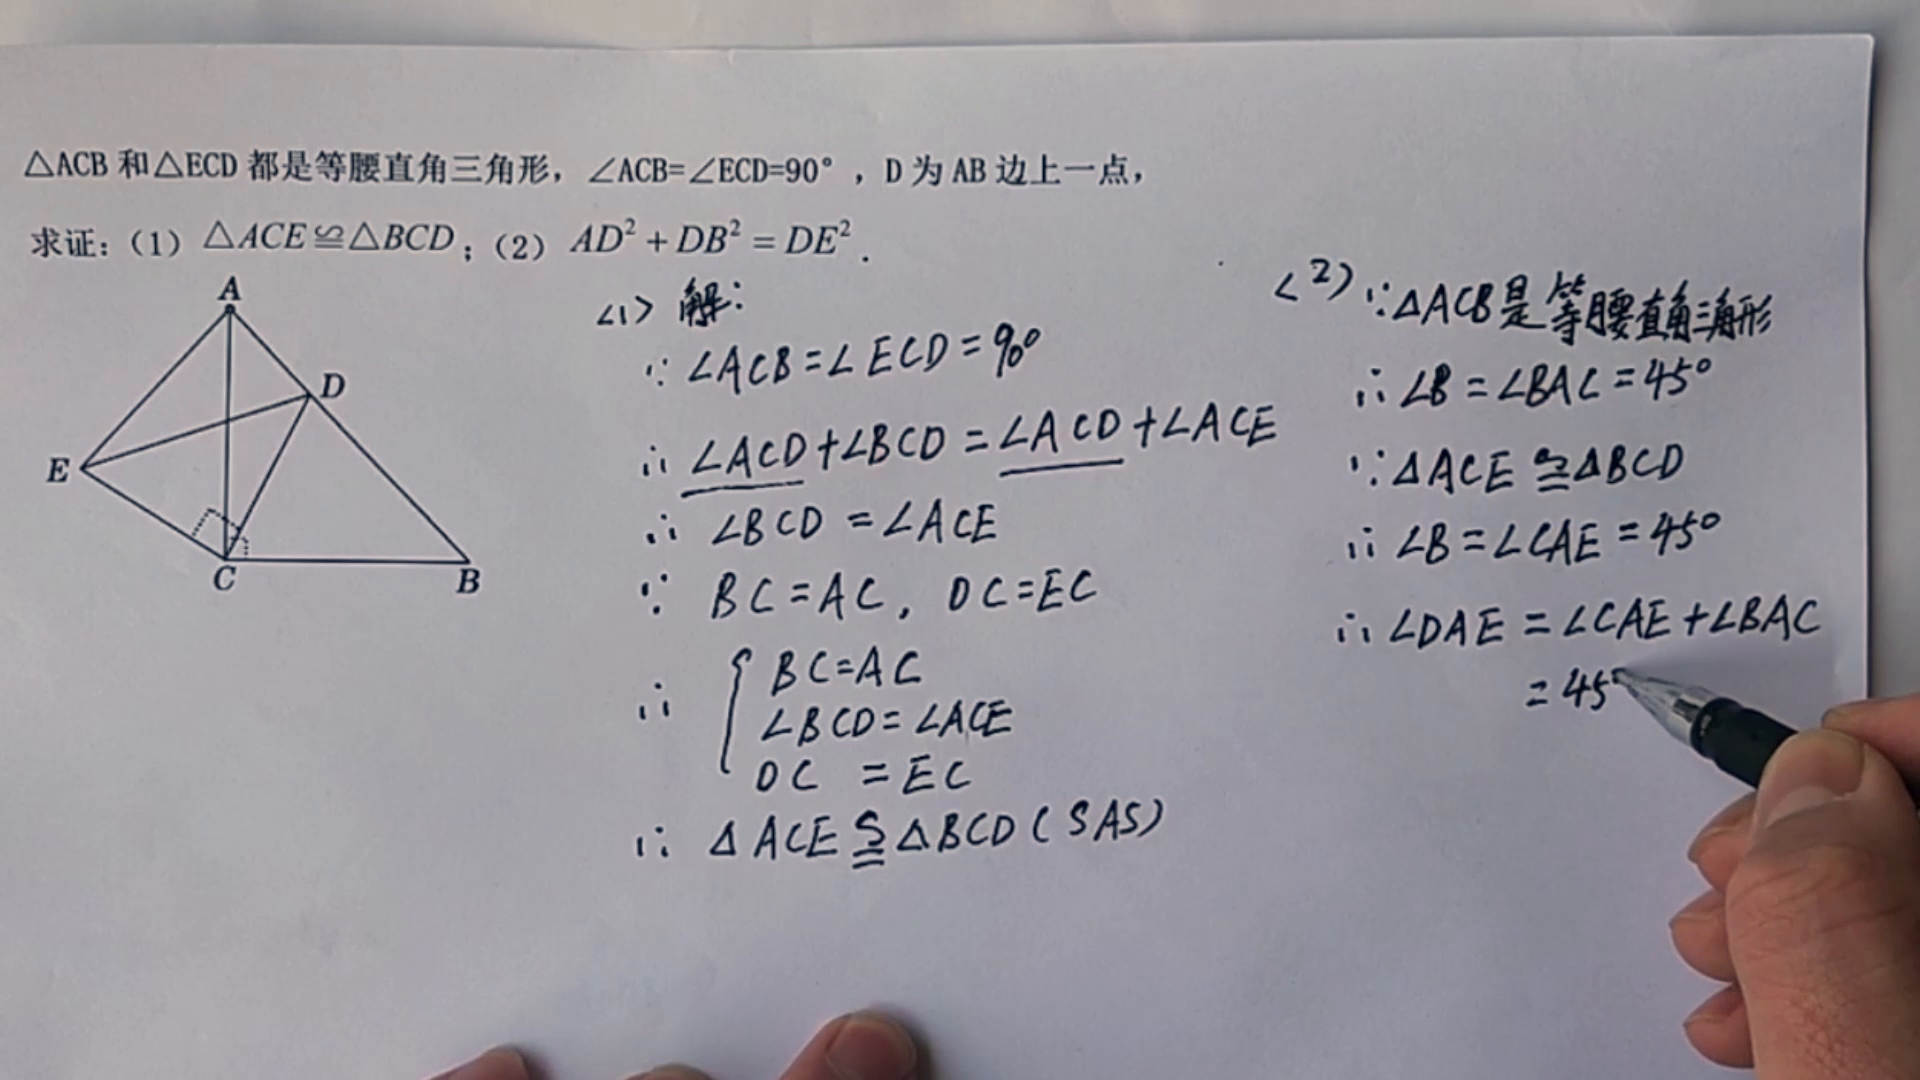 △ACB和△ECD都是等腰直角三角形，∠ACB=∠ECD=90°，D为AB边上一点，
求证：（1）△ACE≌△BCD；（2）AD²+DB²=DE².
A
D
E
C
B
<1> 解：
∵ ∠ACB=∠ECD=90°
∴ ∠ACD+∠BCD=∠ACD+∠ACE
∴ ∠BCD=∠ACE
∵ BC=AC, DC=EC
∴ { BC=AC
∠BCD=∠ACE
DC=EC
∴ △ACE≌△BCD(SAS)
<2> ∵△ACB是等腰直角三角形
∴ ∠B=∠BAC=45°
∵ △ACE≌△BCD
∴ ∠B=∠CAE=45°
∴ ∠DAE=∠CAE+∠BAC
=45°